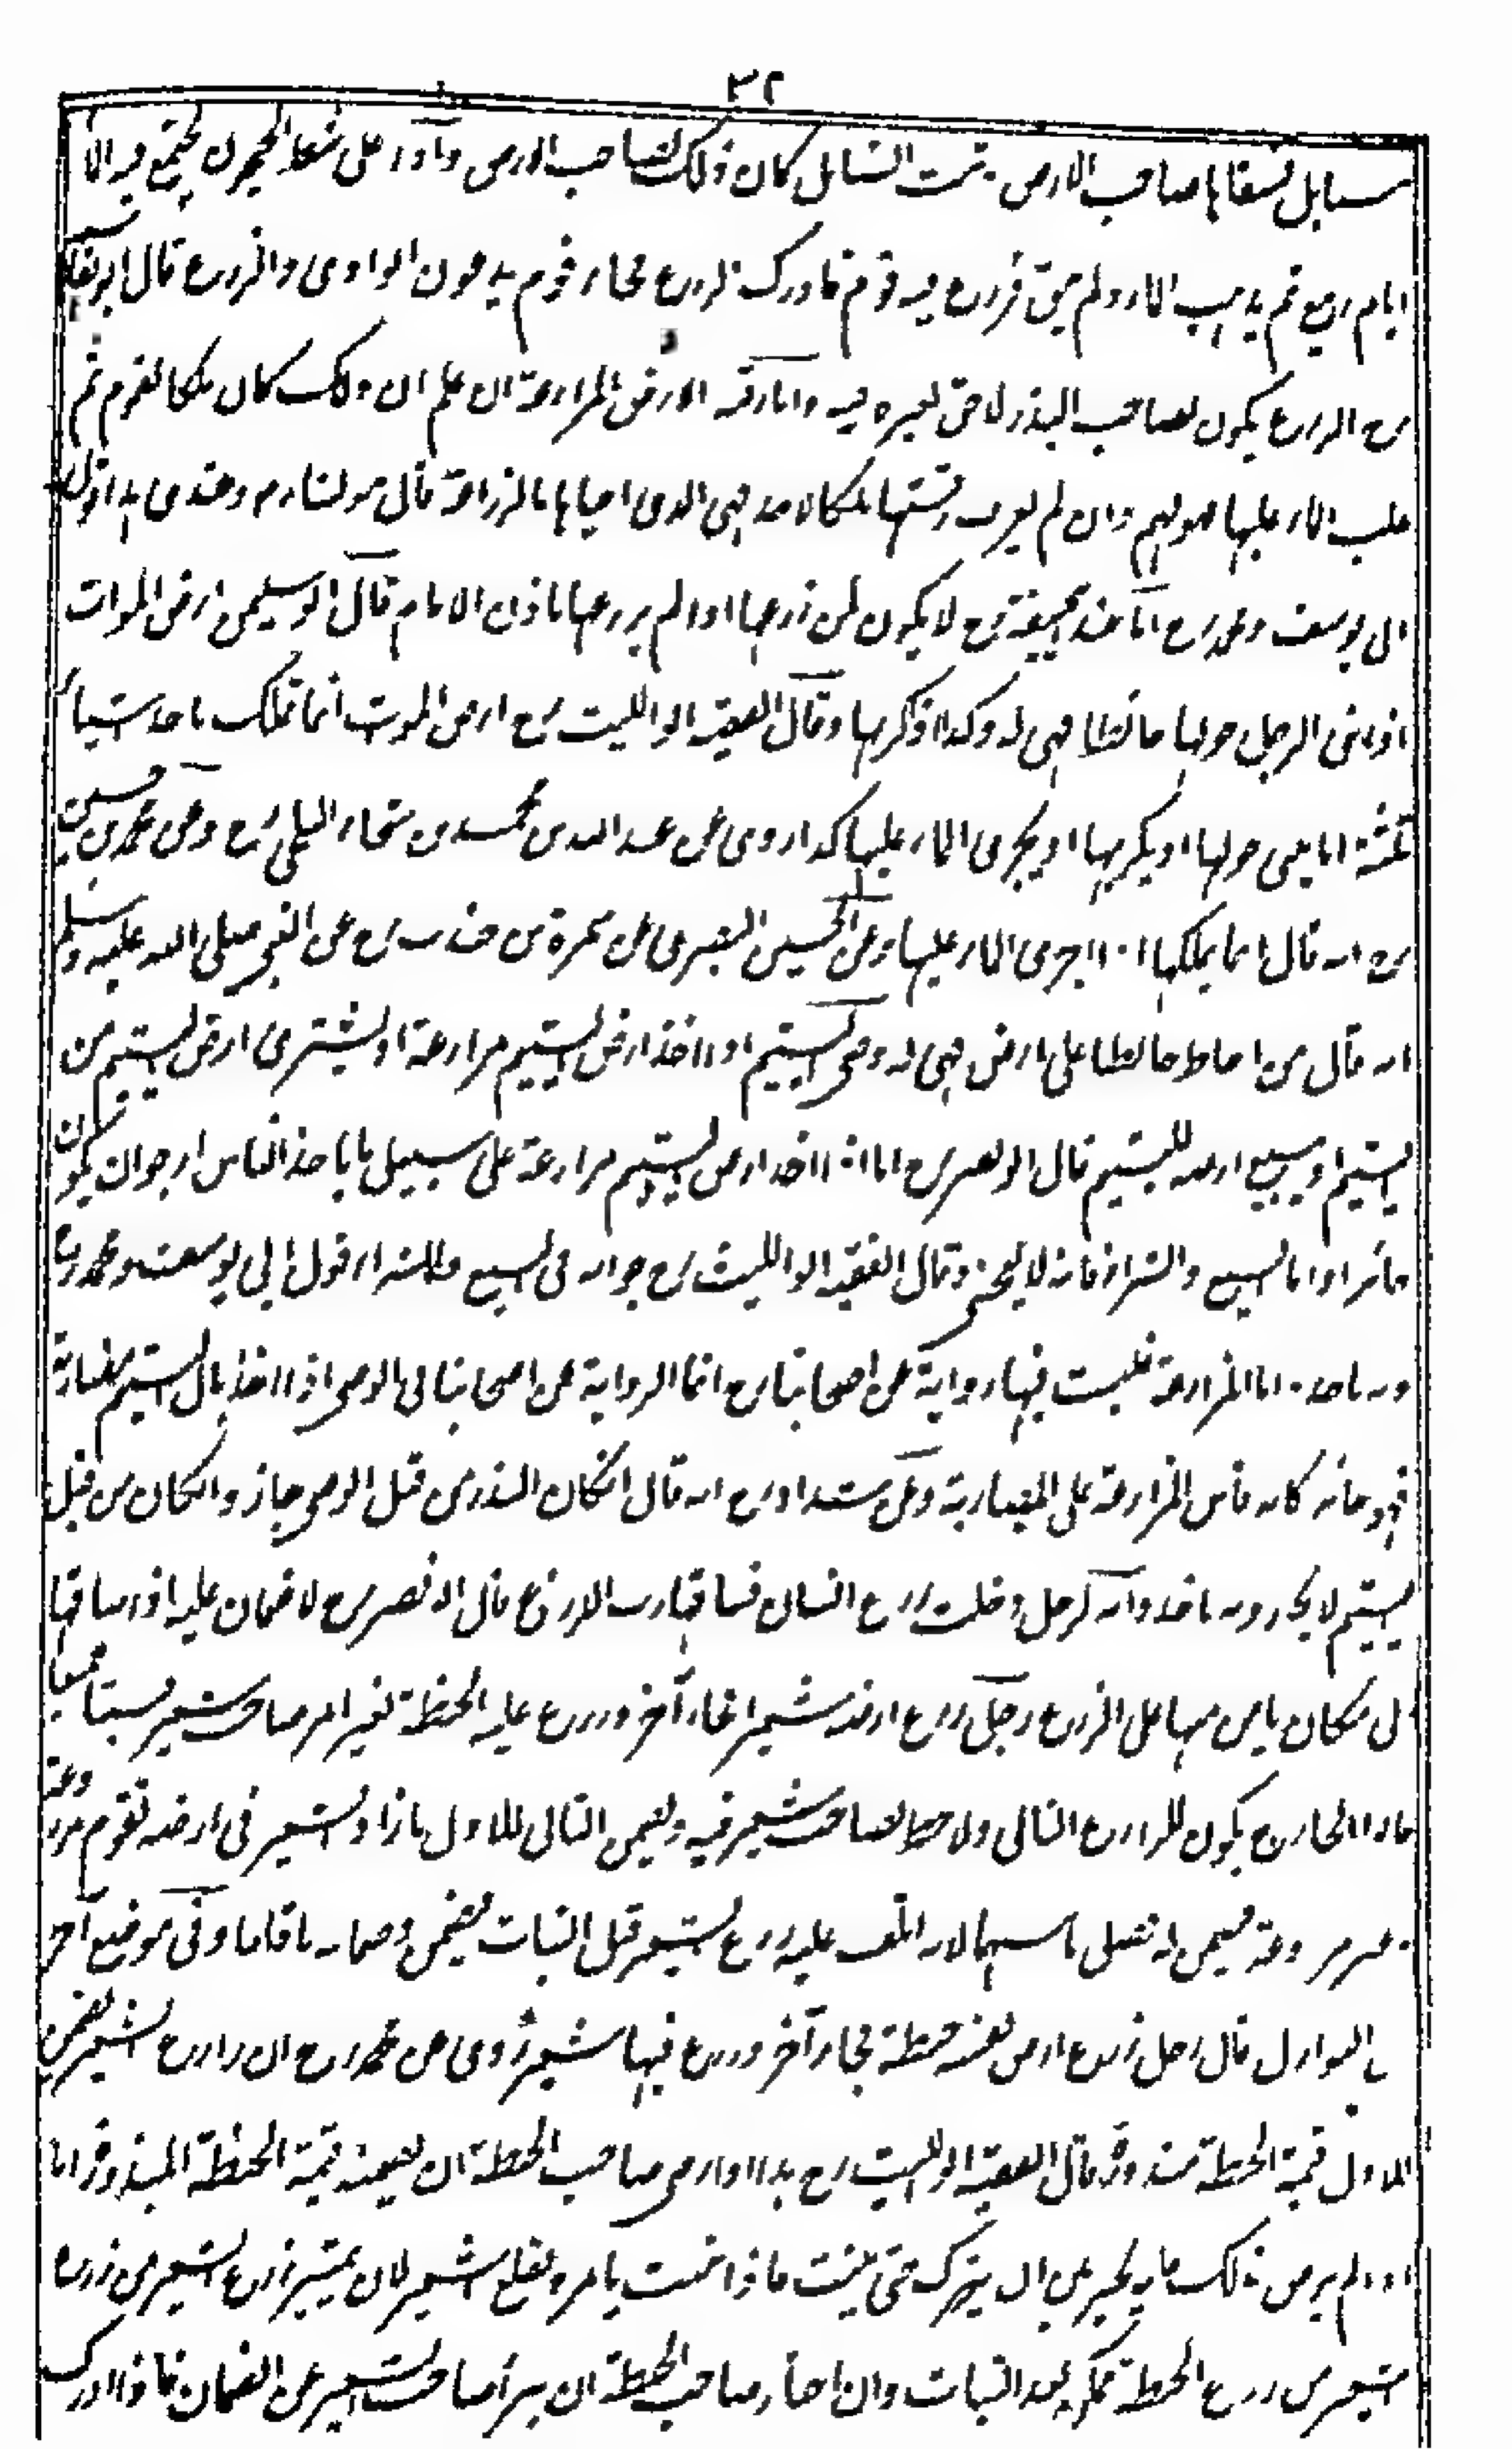 ٣٢
سنابل فسقاها صاحب الارض فنبتت السنابل كان ذلك لصاحب الارض على شط جيحون يجتمع فيه الماء
ايام ربيع ثم يذهب الماء ولم يبق فزرع فيه قوم فادرك الزرع فجاء قوم يدعون الوادى والزرع قال ابو القاسم
رح الزرع يكون لصاحب البذر لا حق لغيره فيه واما رقبة الارض المزارعة ان علم ان ذلك كان ملكا لقوم ثم
غلب الماء عليها فهو لهم وان لم يعرف رقبتها ملكا لاحد فهى للذى احياها بالزراعة قال مولنا رح وعندى هذا قول
ابى يوسف ومحمد رح اما عند ابى حنيفة رح لا يكون لمن زرعها اذا لم يزرعها باذن الامام قال ابو سليمن ارض الموات
اذا بنى الرجل حولها حائطا فهى له وكذا اذا كربها وقال الفقيه ابو الليث رح ارض الموت انما تملك باحد اشياء
ثلثة اما يبنى حولها او يكربها او يجرى الماء عليها كذا روى عن عبد الله بن محمد بن شجاع البلخى رح وعن محمد بن حسن
رح انه قال انما يملكها اذا اجرى الماء عليها وعن الحسن البصرى عن سمرة بن جندب رح عن النبى صلى الله عليه وسلم
انه قال من احاط حائطا على ارض فهى له وصى اليتيم اذا اخذ ارض اليتيم مزارعة او يشترى ارض اليتيم من
اليتيم او يبيع ارضه لليتيم قال ابو نصر رح اما اذا اخذ ارض اليتيم مزارعة على سبيل ما ياخذ الناس ارجو ان يكون
جائزا واما البيع والشراء فانه لا يجوز وقال الفقيه ابو الليث رح جوابه فى البيع والشراء قول ابى يوسف ومحمد رح
وبه ناخذ اما المزارعة فليست فيها رواية عن اصحابنا رح انما الرواية عن اصحابنا فى الوصى اذا اخذ مال اليتيم مضاربة
فهو جائز كانه قاس المزارعة على المضاربة وعن شداد رح انه قال ان كان البذر من قبل الوصى جاز وان كان من قبل
اليتيم لا يجوز وبه ناخذ دابة لرجل دخلت زرع انسان فساقها رب الارض قال ابو نصر رح لا ضمان عليه اذا ساقها
الى مكان يامن منها على الزرع رجل زرع ارضه شعيرا فجاء آخر وزرع عليه الحنطة بغير امر صاحب شعير فنبتا جميعا
فان الخارج يكون للزارع الثانى ولا حظ لصاحب شعير فيه ويضمن الثانى للاول ما زاد الشعير فى ارضه تقوم مزروعة
وغير مزروعة فيضمن له فضل ما بينهما لانه اتلف عليه زرع الشعير قبل النبات فيضمن وفى موضع آخر
النوازل قال رجل زرع ارض نفسه حنطة فجاء آخر وزرع فيها شعيرا روى عن محمد رح ان زارع الشعير يضمن
للاول قيمة الحنطة مبذورة قال الفقيه ابو الليث رح هذا اذا رضى صاحب الحنطة ان يضمنه قيمة الحنطة المبذورة اما
اذا لم يرض بذلك فانه يخير بين ان يترك حتى ينبت فاذا نبت يامره بقلع شعير لان تمييز زرع الشعير من زرع
الشعير من زرع الحنطة ممكن بعد النبات وان اختار صاحب الحنطة ان يبرأ صاحب الشعير عن الضمان فاذا ادرك